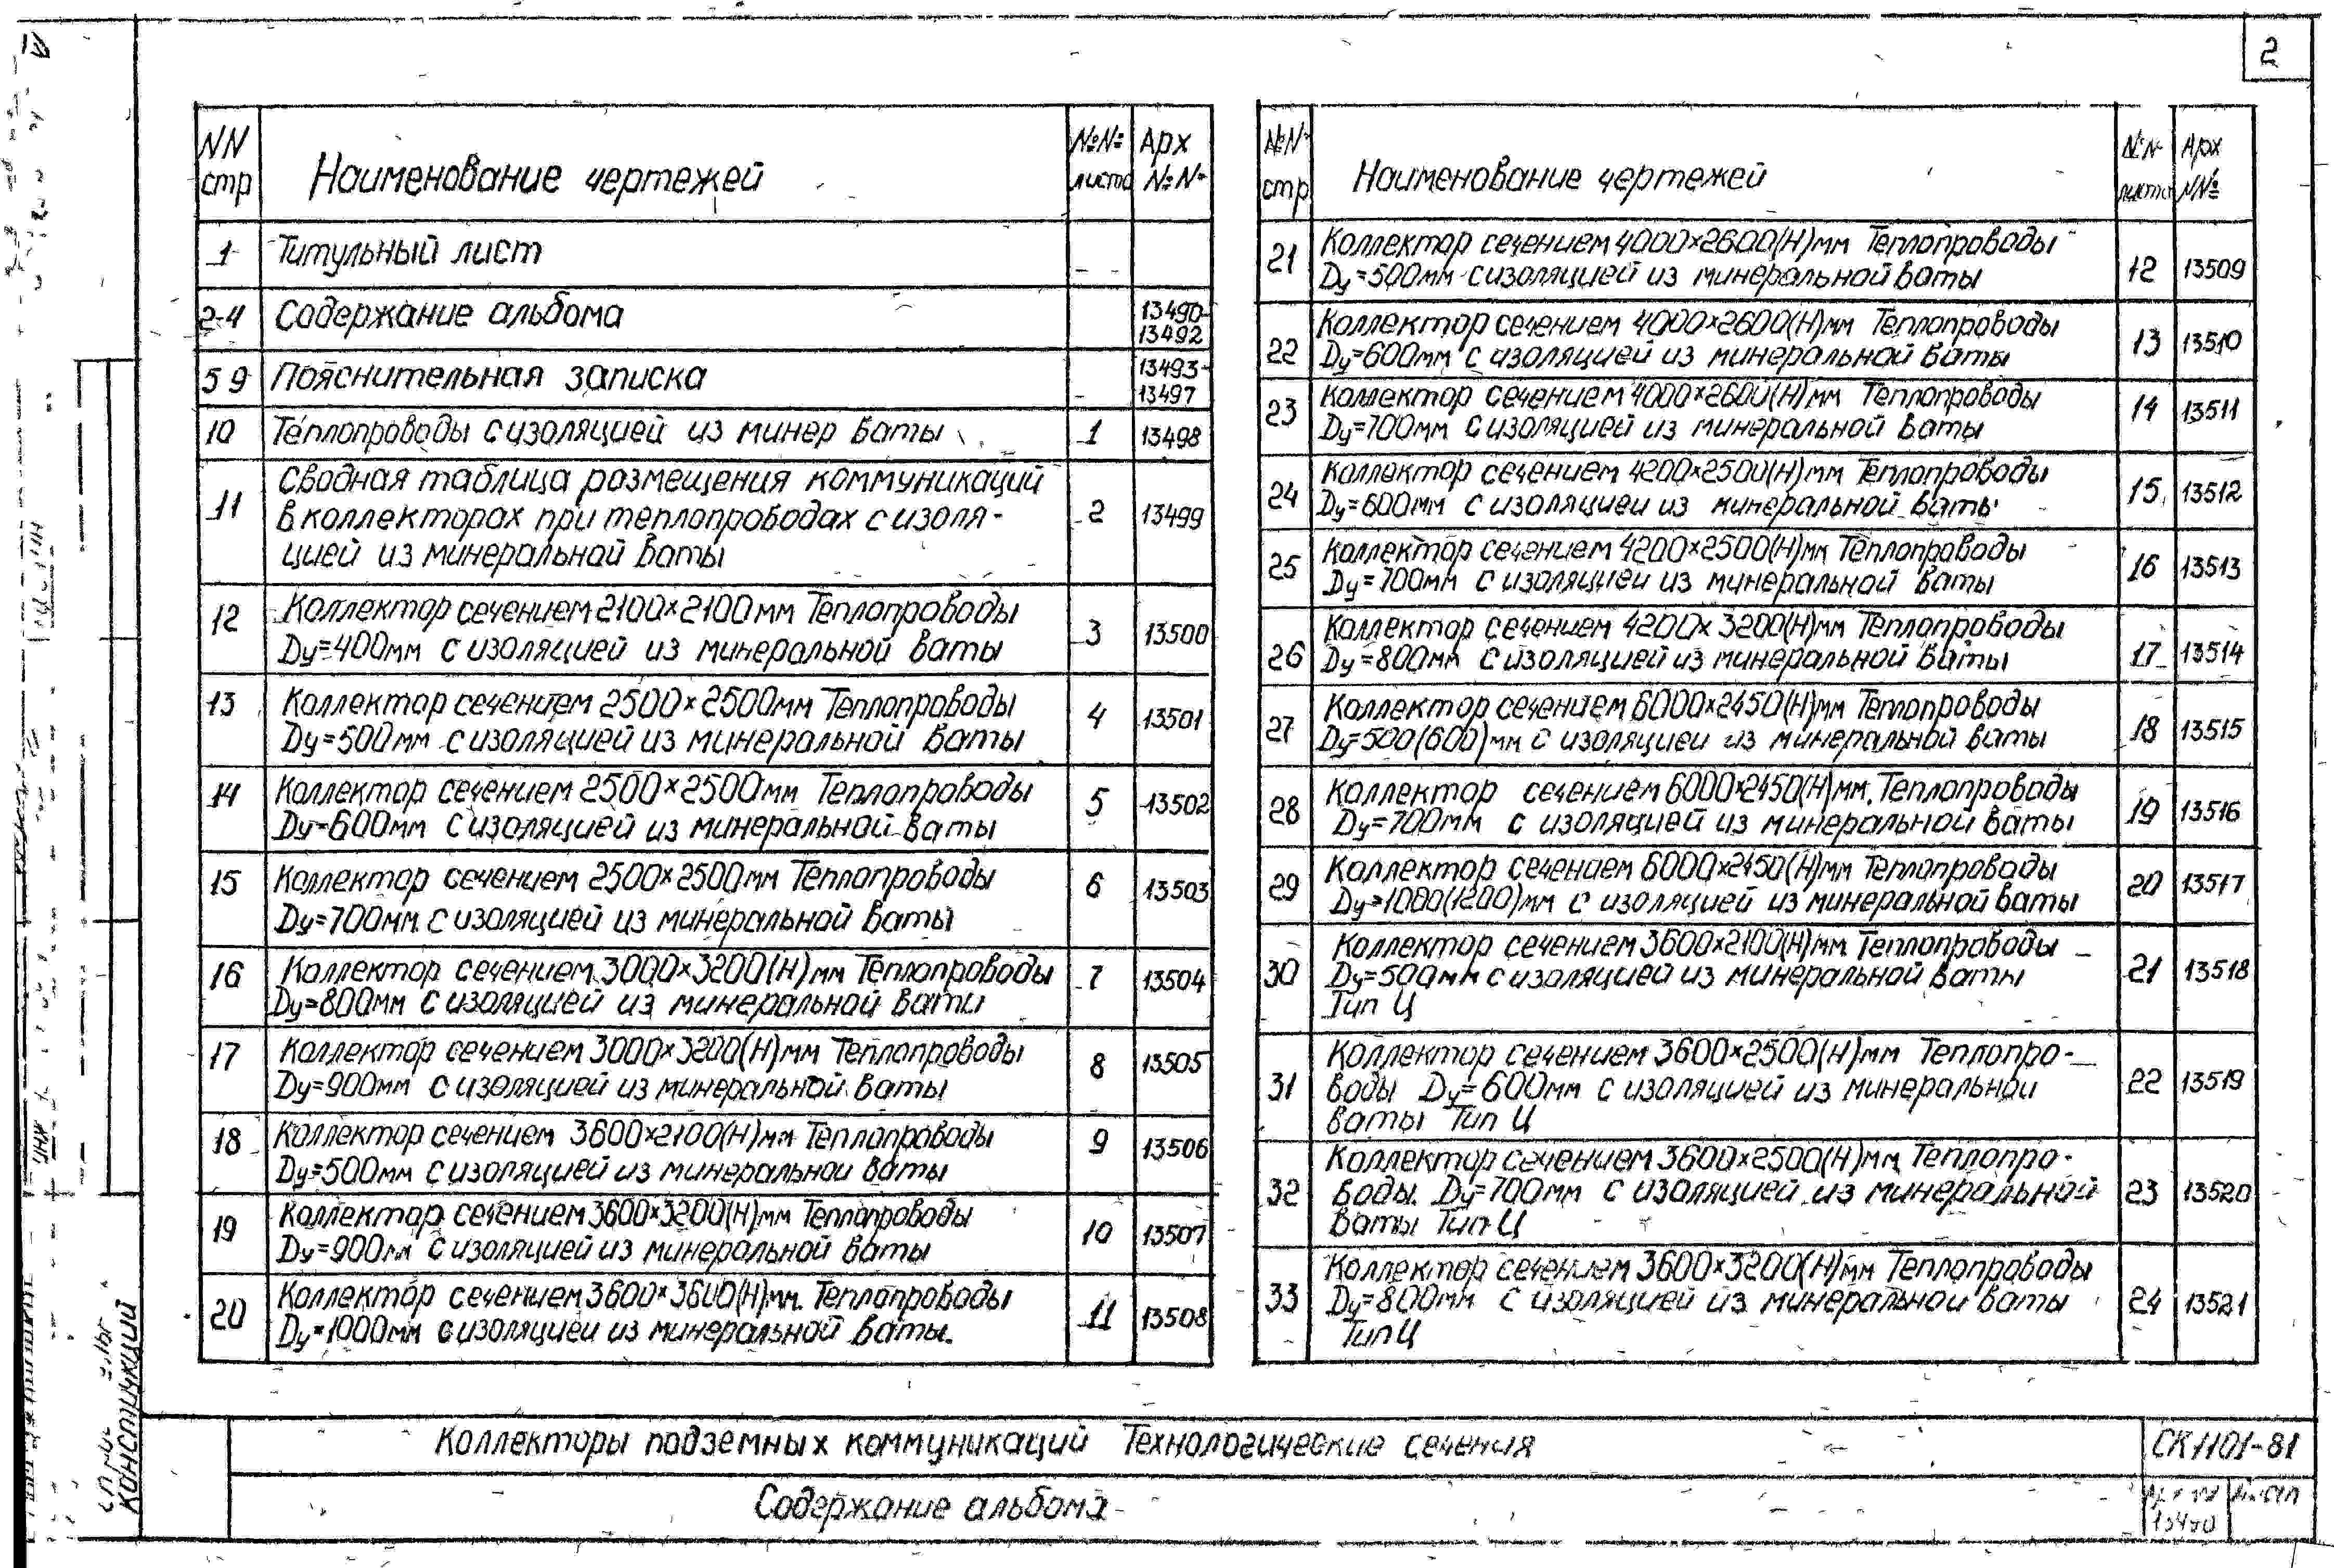 2
NN стр Наименование чертежей №№ листа Арх №№
1 Титульный лист
2-4 Содержание альбома 13490-13492
5 9 Пояснительная записка 13493-13497
10 Теплопроводы с изоляцией из минер ваты 1 13498
11 Сводная таблица размещения коммуникаций
в коллекторах при теплопроводах с изоля-
цией из минеральной ваты 2 13499
12 Коллектор сечением 2100×2100мм Теплопроводы
Dу=400мм с изоляцией из минеральной ваты 3 13500
13 Коллектор сечением 2500×2500мм Теплопроводы
Dу=500мм с изоляцией из минеральной ваты 4 13501
14 Коллектор сечением 2500×2500мм Теплопроводы
Dу=600мм с изоляцией из минеральной ваты 5 13502
15 Коллектор сечением 2500×2500мм Теплопроводы
Dу=700мм с изоляцией из минеральной ваты 6 13503
16 Коллектор сечением 3000×3200(Н)мм Теплопроводы
Dу=800мм с изоляцией из минеральной ваты 7 13504
17 Коллектор сечением 3000×3200(Н)мм Теплопроводы
Dу=900мм с изоляцией из минеральной ваты 8 13505
18 Коллектор сечением 3600×2100(Н)мм Теплопроводы
Dу=500мм с изоляцией из минеральной ваты 9 13506
19 Коллектор сечением 3600×3200(Н)мм Теплопроводы
Dу=900мм с изоляцией из минеральной ваты 10 13507
20 Коллектор сечением 3600×3600(Н)мм. Теплопроводы
Dу=1000мм с изоляцией из минеральной ваты. 11 13508
№№ стр Наименование чертежей №№ листа Арх №№
21 Коллектор сечением 4000×2600(Н)мм Теплопроводы
Dу=500мм с изоляцией из минеральной ваты 12 13509
22 Коллектор сечением 4000×2600(Н)мм Теплопроводы
Dу=600мм с изоляцией из минеральной ваты 13 13510
23 Коллектор сечением 4000×2600(Н)мм Теплопроводы
Dу=700мм с изоляцией из минеральной ваты 14 13511
24 Коллектор сечением 4200×2500(Н)мм Теплопроводы
Dу=600мм с изоляцией из минеральной ваты 15 13512
25 Коллектор сечением 4200×2500(Н)мм Теплопроводы
Dу=700мм с изоляцией из минеральной ваты 16 13513
26 Коллектор сечением 4200×3200(Н)мм Теплопроводы
Dу=800мм с изоляцией из минеральной ваты 17 13514
27 Коллектор сечением 6000×2450(Н)мм Теплопроводы
Dу=500(600)мм с изоляцией из минеральной ваты 18 13515
28 Коллектор сечением 6000×2450(Н)мм. Теплопроводы
Dу=700мм с изоляцией из минеральной ваты 19 13516
29 Коллектор сечением 6000×2450(Н)мм Теплопроводы
Dу=1000(1200)мм с изоляцией из минеральной ваты 20 13517
30 Коллектор сечением 3600×2100(Н)мм Теплопроводы
Dу=500мм с изоляцией из минеральной ваты
Тип Ц 21 13518
31 Коллектор сечением 3600×2500(Н)мм Теплопро-
воды Dу=600мм с изоляцией из минеральной
ваты Тип Ц 22 13519
32 Коллектор сечением 3600×2500(Н)мм Теплопро-
воды. Dу=700мм с изоляцией из минеральной
ваты Тип Ц 23 13520
33 Коллектор сечением 3600×3200(Н)мм Теплопроводы
Dу=800мм с изоляцией из минеральной ваты
Тип Ц 24 13521
Коллекторы подземных коммуникаций Технологические сечения СК1101-81
Содержание альбома